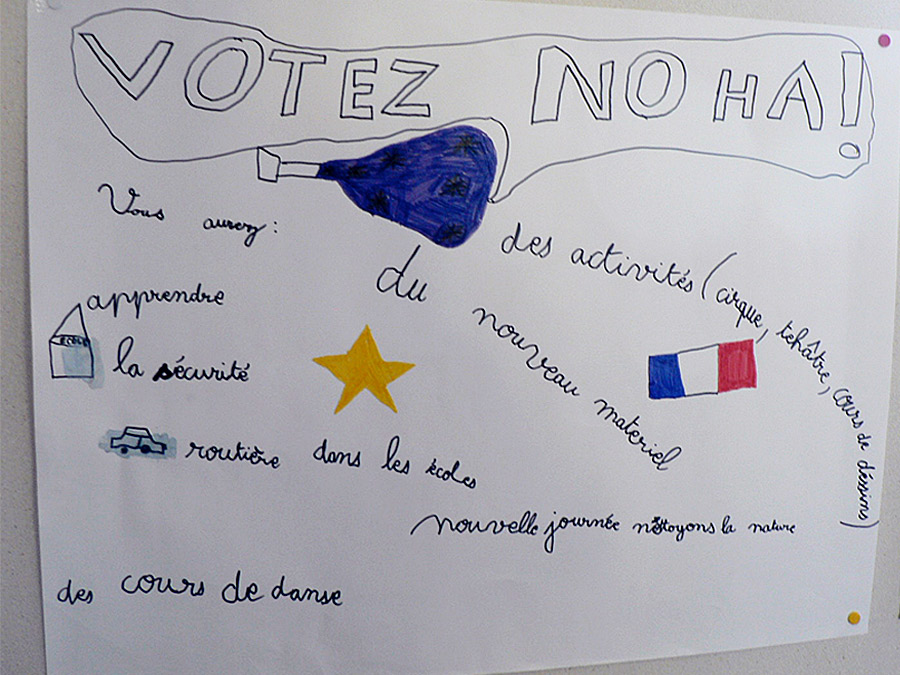 VOTEZ NOHA!
Vous aurez :
des activités (cirque, tehâtre, cours de déssins)
du nouveau materiel
apprendre
ECOLE
la sécurité
routière dans les écoles
nouvelle journée nétoyons la nature
des cours de danse